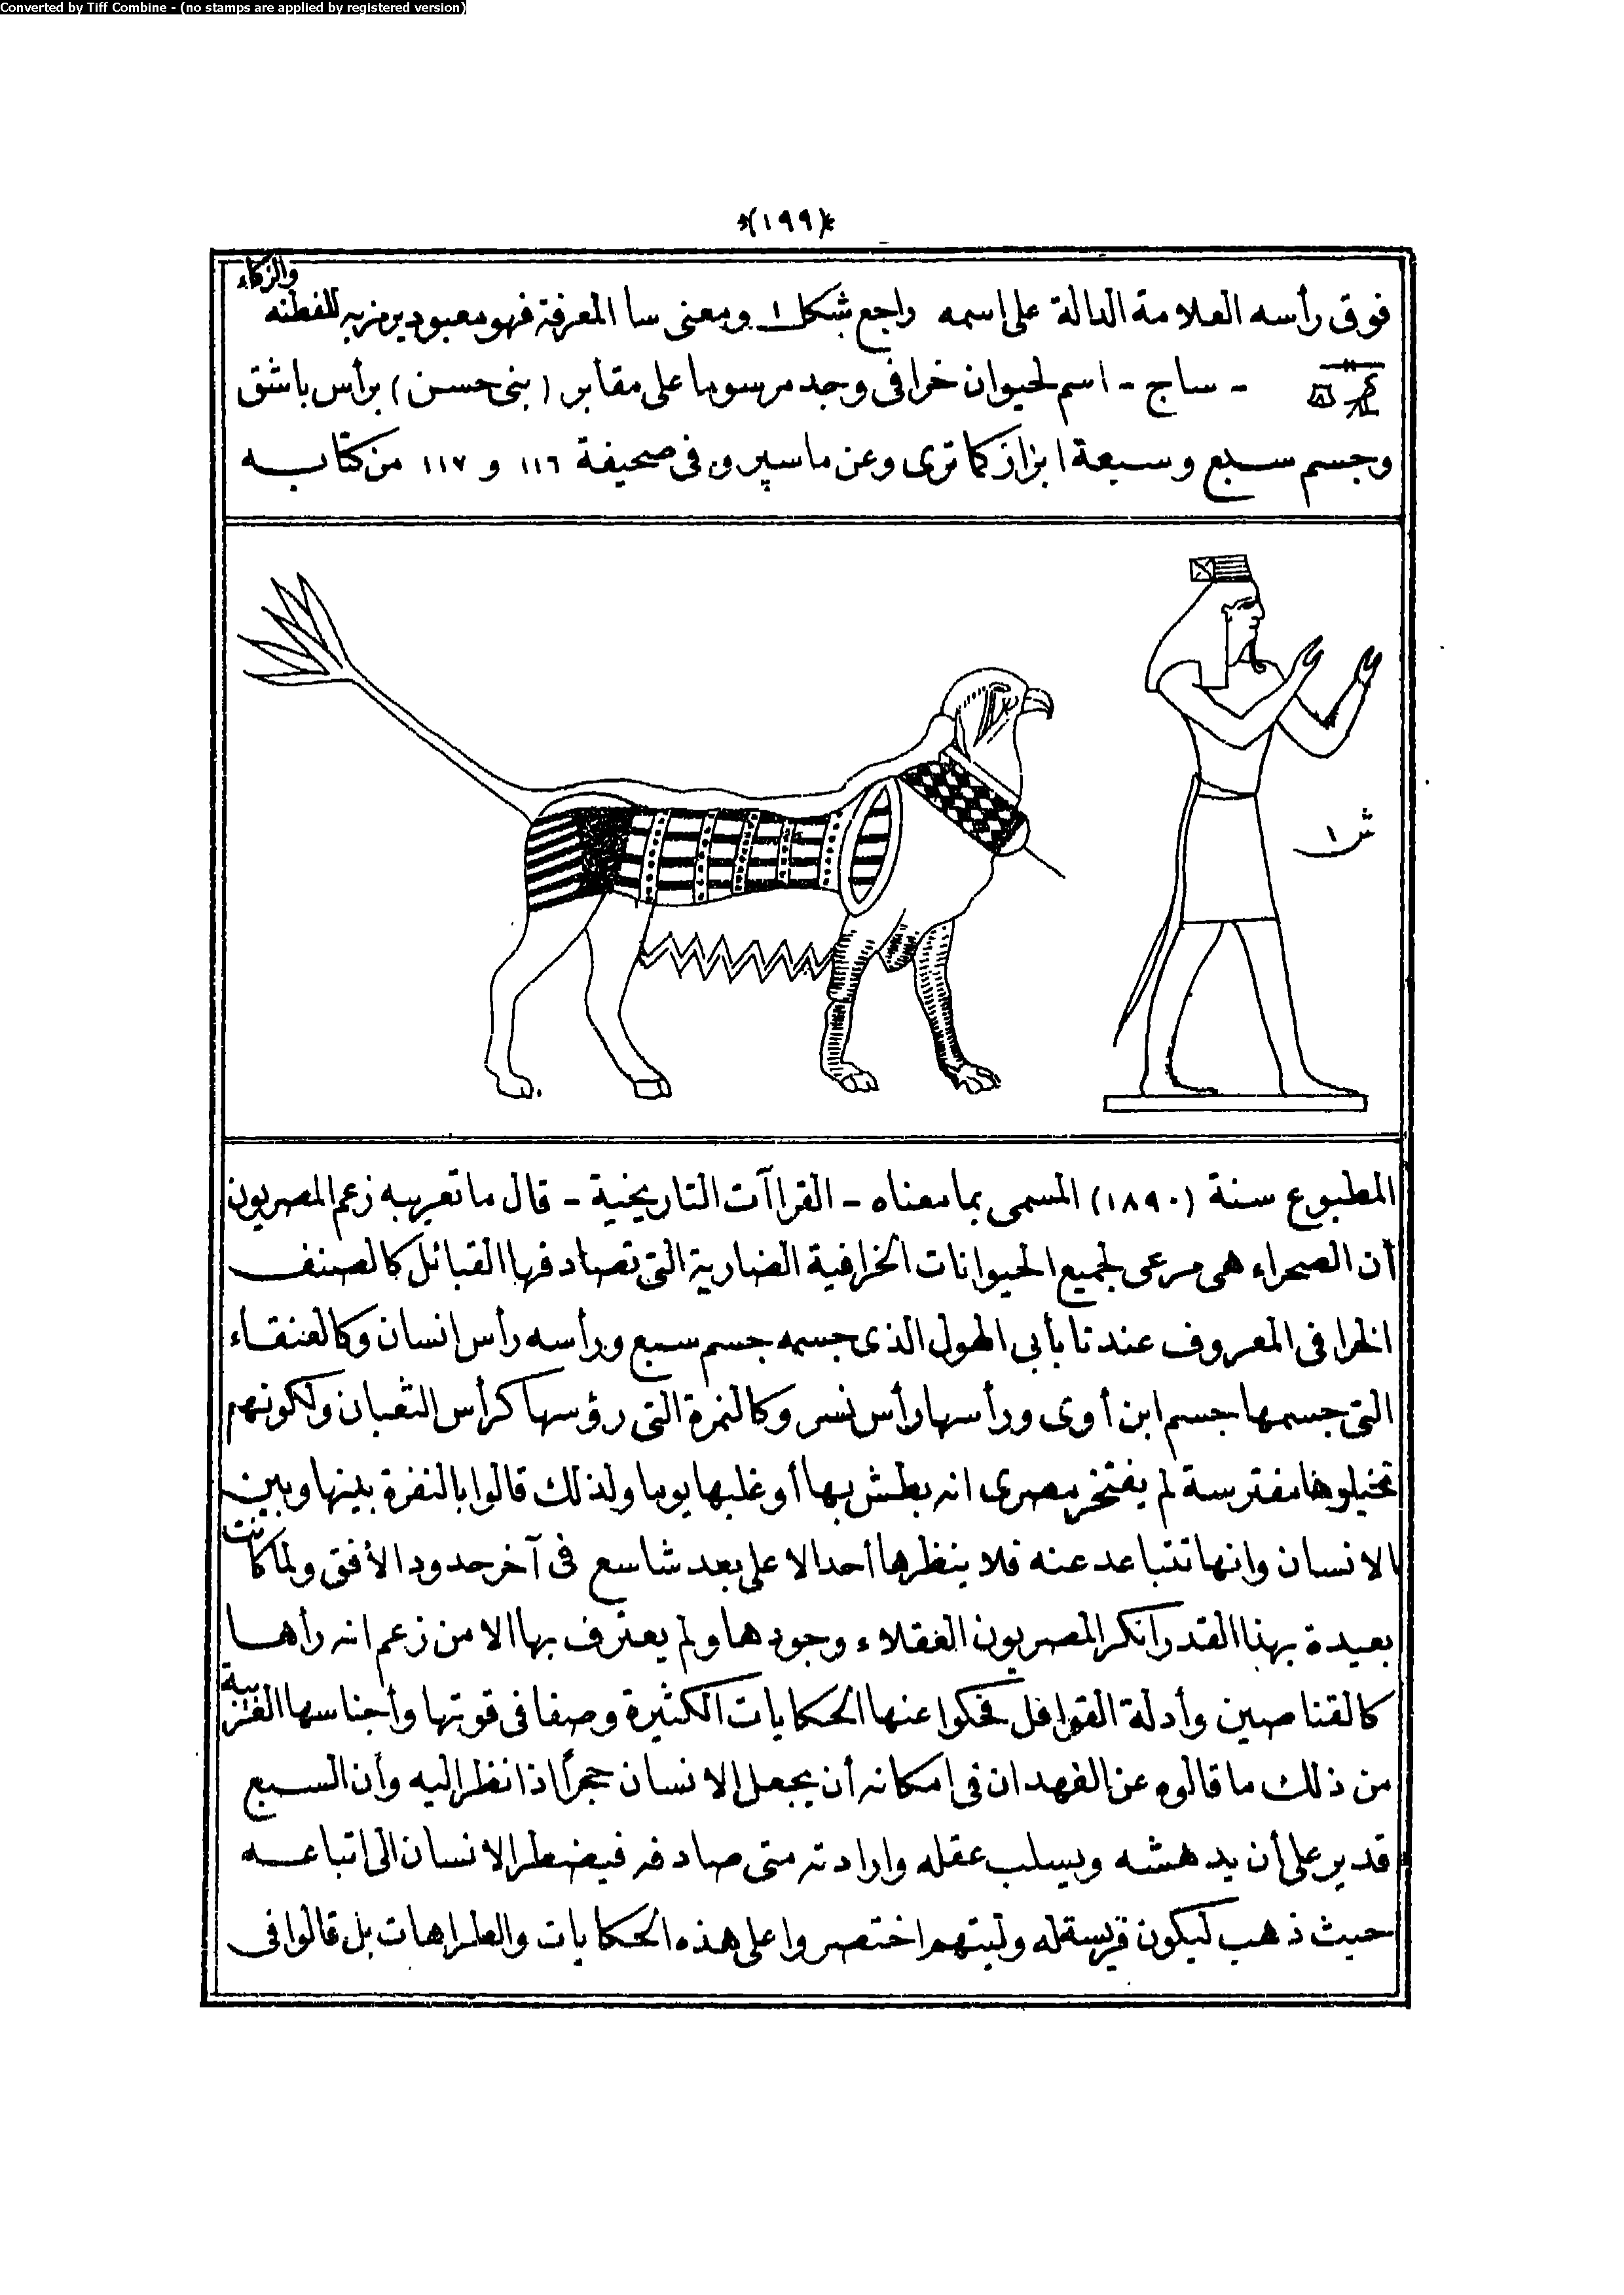 Converted by Tiff Combine - (no stamps are applied by registered version)
*(١٩٩)*
فوق رأسه العلامة الدالة على اسمه راجع شكل ١ ومعنى سا المعرفة فهو معبود يرمز به للفطنه والزكاء
- ساج - اسم لحيوان خرافى وجد مرسوما على مقابر (بنى حسن) برأس باشق
وجسم سبع وسبعة ابزاز كما ترى وعن ماسپرو فى صحيفة ١١٦ و ١١٧ من كتابه
ش ١
المطبوع سنة (١٨٩٠) المسمى بما معناه - القراآت التاريخية - قال ما تعريبه زعم المصريون
أن الصحراء هى مرعى لجميع الحيوانات الخرافية الضارية التى تصادفها القبائل كالصنف
الخرافى المعروف عندنا بأبى الهول الذى جسمه جسم سبع ورأسه رأس انسان وكالعنقاء
التى جسمها جسم ابن أوى ورأسها رأس نسر وكالنمرة التى رؤسها كرأس الثعبان ولكونهم
تخيلوها مفترسة لم يفتخر مصرى انه بطش بها أو غلبها يوما ولذلك قالوا بالنفرة بينها وبين
الانسان وانها تتباعد عنه فلا ينظرها أحد الا على بعد شاسع فى آخر حدود الأفق ولما كانت
بعيدة بهذا القدر انكر المصريون العقلاء وجودها ولم يعترف بها الا من زعم انه رأها
كالقناصين وأدلة القوافل فحكوا عنها الحكايات الكثيرة وصفا فى قوتها وأجناسها الغريبة
من ذلك ما قالوه عن الفهد ان فى امكانه أن يجعل الانسان حجرًا اذا نظر اليه وأن السبع
قدير على أن يدهشه ويسلب عقله وارادته متى صادفه فيضطر الانسان الى اتباعه
حيث ذهب ليكون فريسة له وليتهم اختصروا على هذه الحكايات والطراهات بل قالوا فى